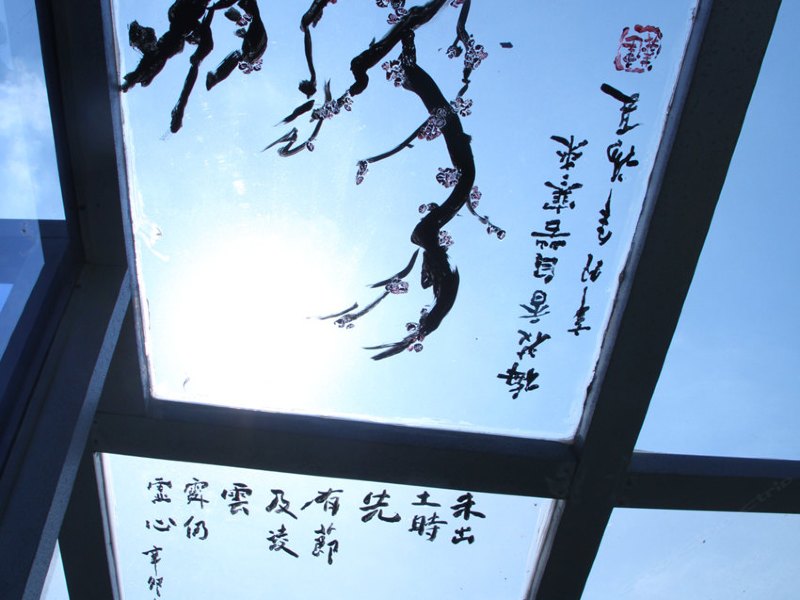 梅花香自苦寒來
辛卯年
未出
土時
先
有節
及凌
雲
處仍
虛心
辛卯